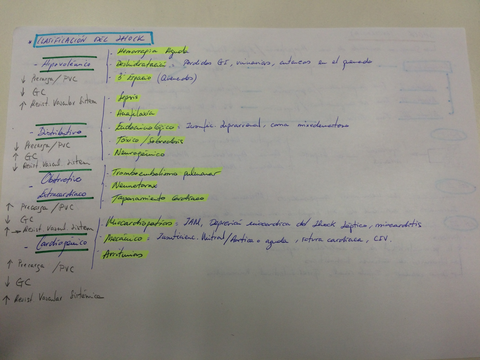 CLASIFICACIÓN DEL SHOCK
Hemorragia Aguda
- Hipovolémico
Deshidratación: Pérdidas GI, urinarias, cutáneas en el quemado
↓ Precarga / PVC
3er Espacio (Quemados)
↓ GC
↑ Resist Vascular Sistem
Sepsis
Anafilaxia
Endocrinológico: Insuf. suprarrenal, coma mixedematoso
- Distributivo
Tóxico / Sobredosis
↓ Precarga / PVC
Neurogénico
↑ GC
↓ Resist Vascul. Sistem
- Obstructivo
Tromboembolismo pulmonar
Extracardíaco
Neumotórax
↑ Precarga / PVC
Taponamiento Cardíaco
↓ GC
↑ Resist. Vascul. Sistem
Miocardiopático: IAM, Depresión miocárdica del Shock Séptico, miocarditis
- Cardiogénico
Mecánico: Mitral/Aórtica aguda, rotura cardíaca, CIV.
↑ Precarga / PVC
Arritmias
↓ GC
↑ Resist Vascular Sistémica